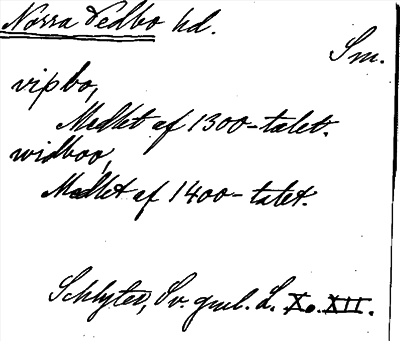 Norra Vedbo hd.
Sm.
vipbo,
Medlet af 1300-talet.
widboo,
Medlet af 1400-talet.
Schlyter, Sv. gml. L. X o. XII.